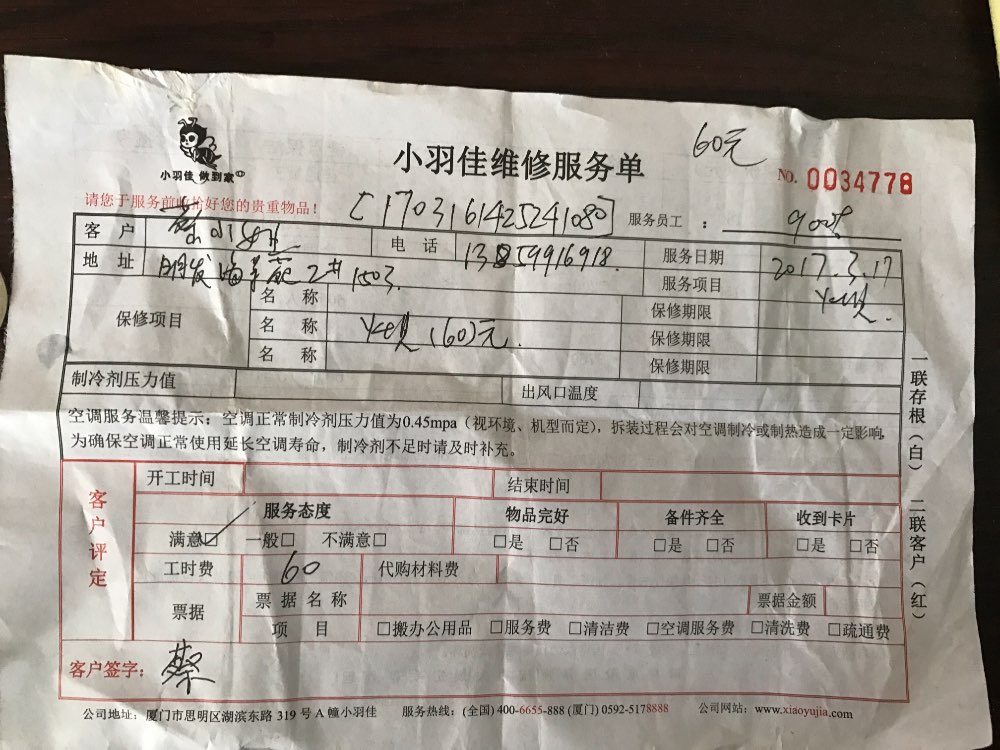 60元
小羽佳维修服务单
小羽佳 做到家
NO. 0034778
请您于服务前收拾好您的贵重物品！
[170316142524108] 服务员工：
客户 蔡小姐 电话 13859916918. 服务日期 2017.3.17
地址 明发海景苑2# 1503. 服务项目
保修项目 名称 保修期限
名称 (60)元. 保修期限
名称 保修期限
制冷剂压力值 出风口温度
空调服务温馨提示：空调正常制冷剂压力值为0.45mpa（视环境、机型而定），拆装过程会对空调制冷或制热造成一定影响，
为确保空调正常使用延长空调寿命，制冷剂不足时请及时补充。
一联存根（白） 二联客户（红）
客户评定
开工时间 结束时间
服务态度 物品完好 备件齐全 收到卡片
满意□ 一般□ 不满意□ □是 □否 □是 □否 □是 □否
工时费 60 代购材料费
票据 票据名称 票据金额
项目 □搬办公用品 □服务费 □清洁费 □空调服务费 □清洗费 □疏通费
客户签字：蔡
公司地址：厦门市思明区湖滨东路 319 号 A 幢小羽佳 服务热线：(全国) 400-6655-888 (厦门) 0592-5178888 公司网站：www.xiaoyujia.com